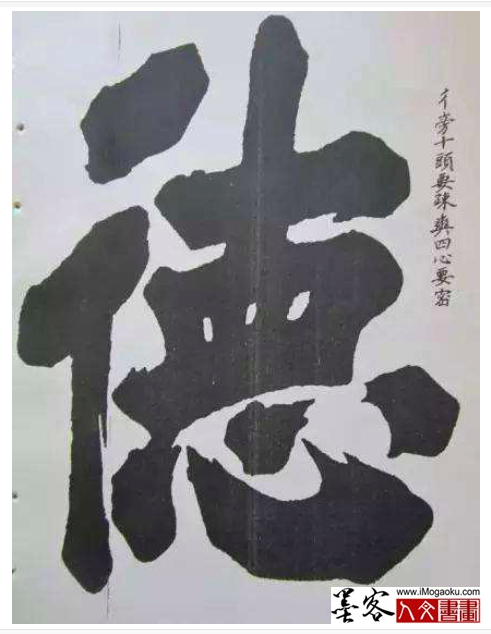 德
彳旁十頭要疎爽四心要密
墨客
www.iMogaoku.com
人文書畫